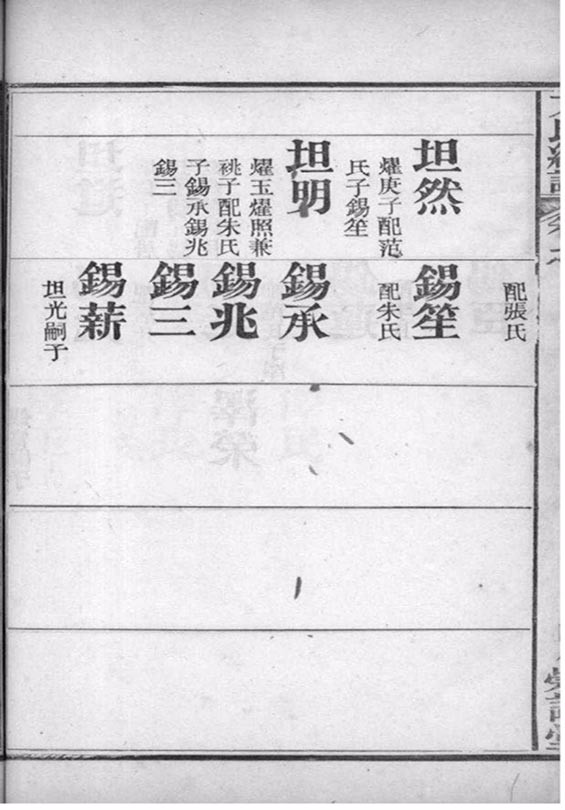 坦然
燿庚子配范
氏子錫笙
坦明
燿玉燿照兼
祧子配朱氏
子錫承錫兆
錫三
配張氏
錫笙
配朱氏
錫承
錫兆
錫三
錫薪
坦光嗣子